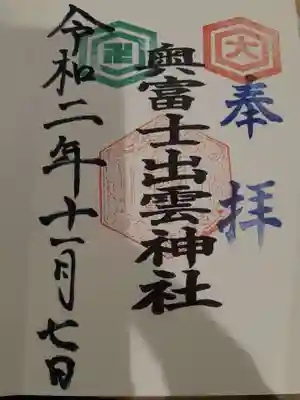 奉拝
大
奥富士出雲神社
卍
令和二年十一月七日